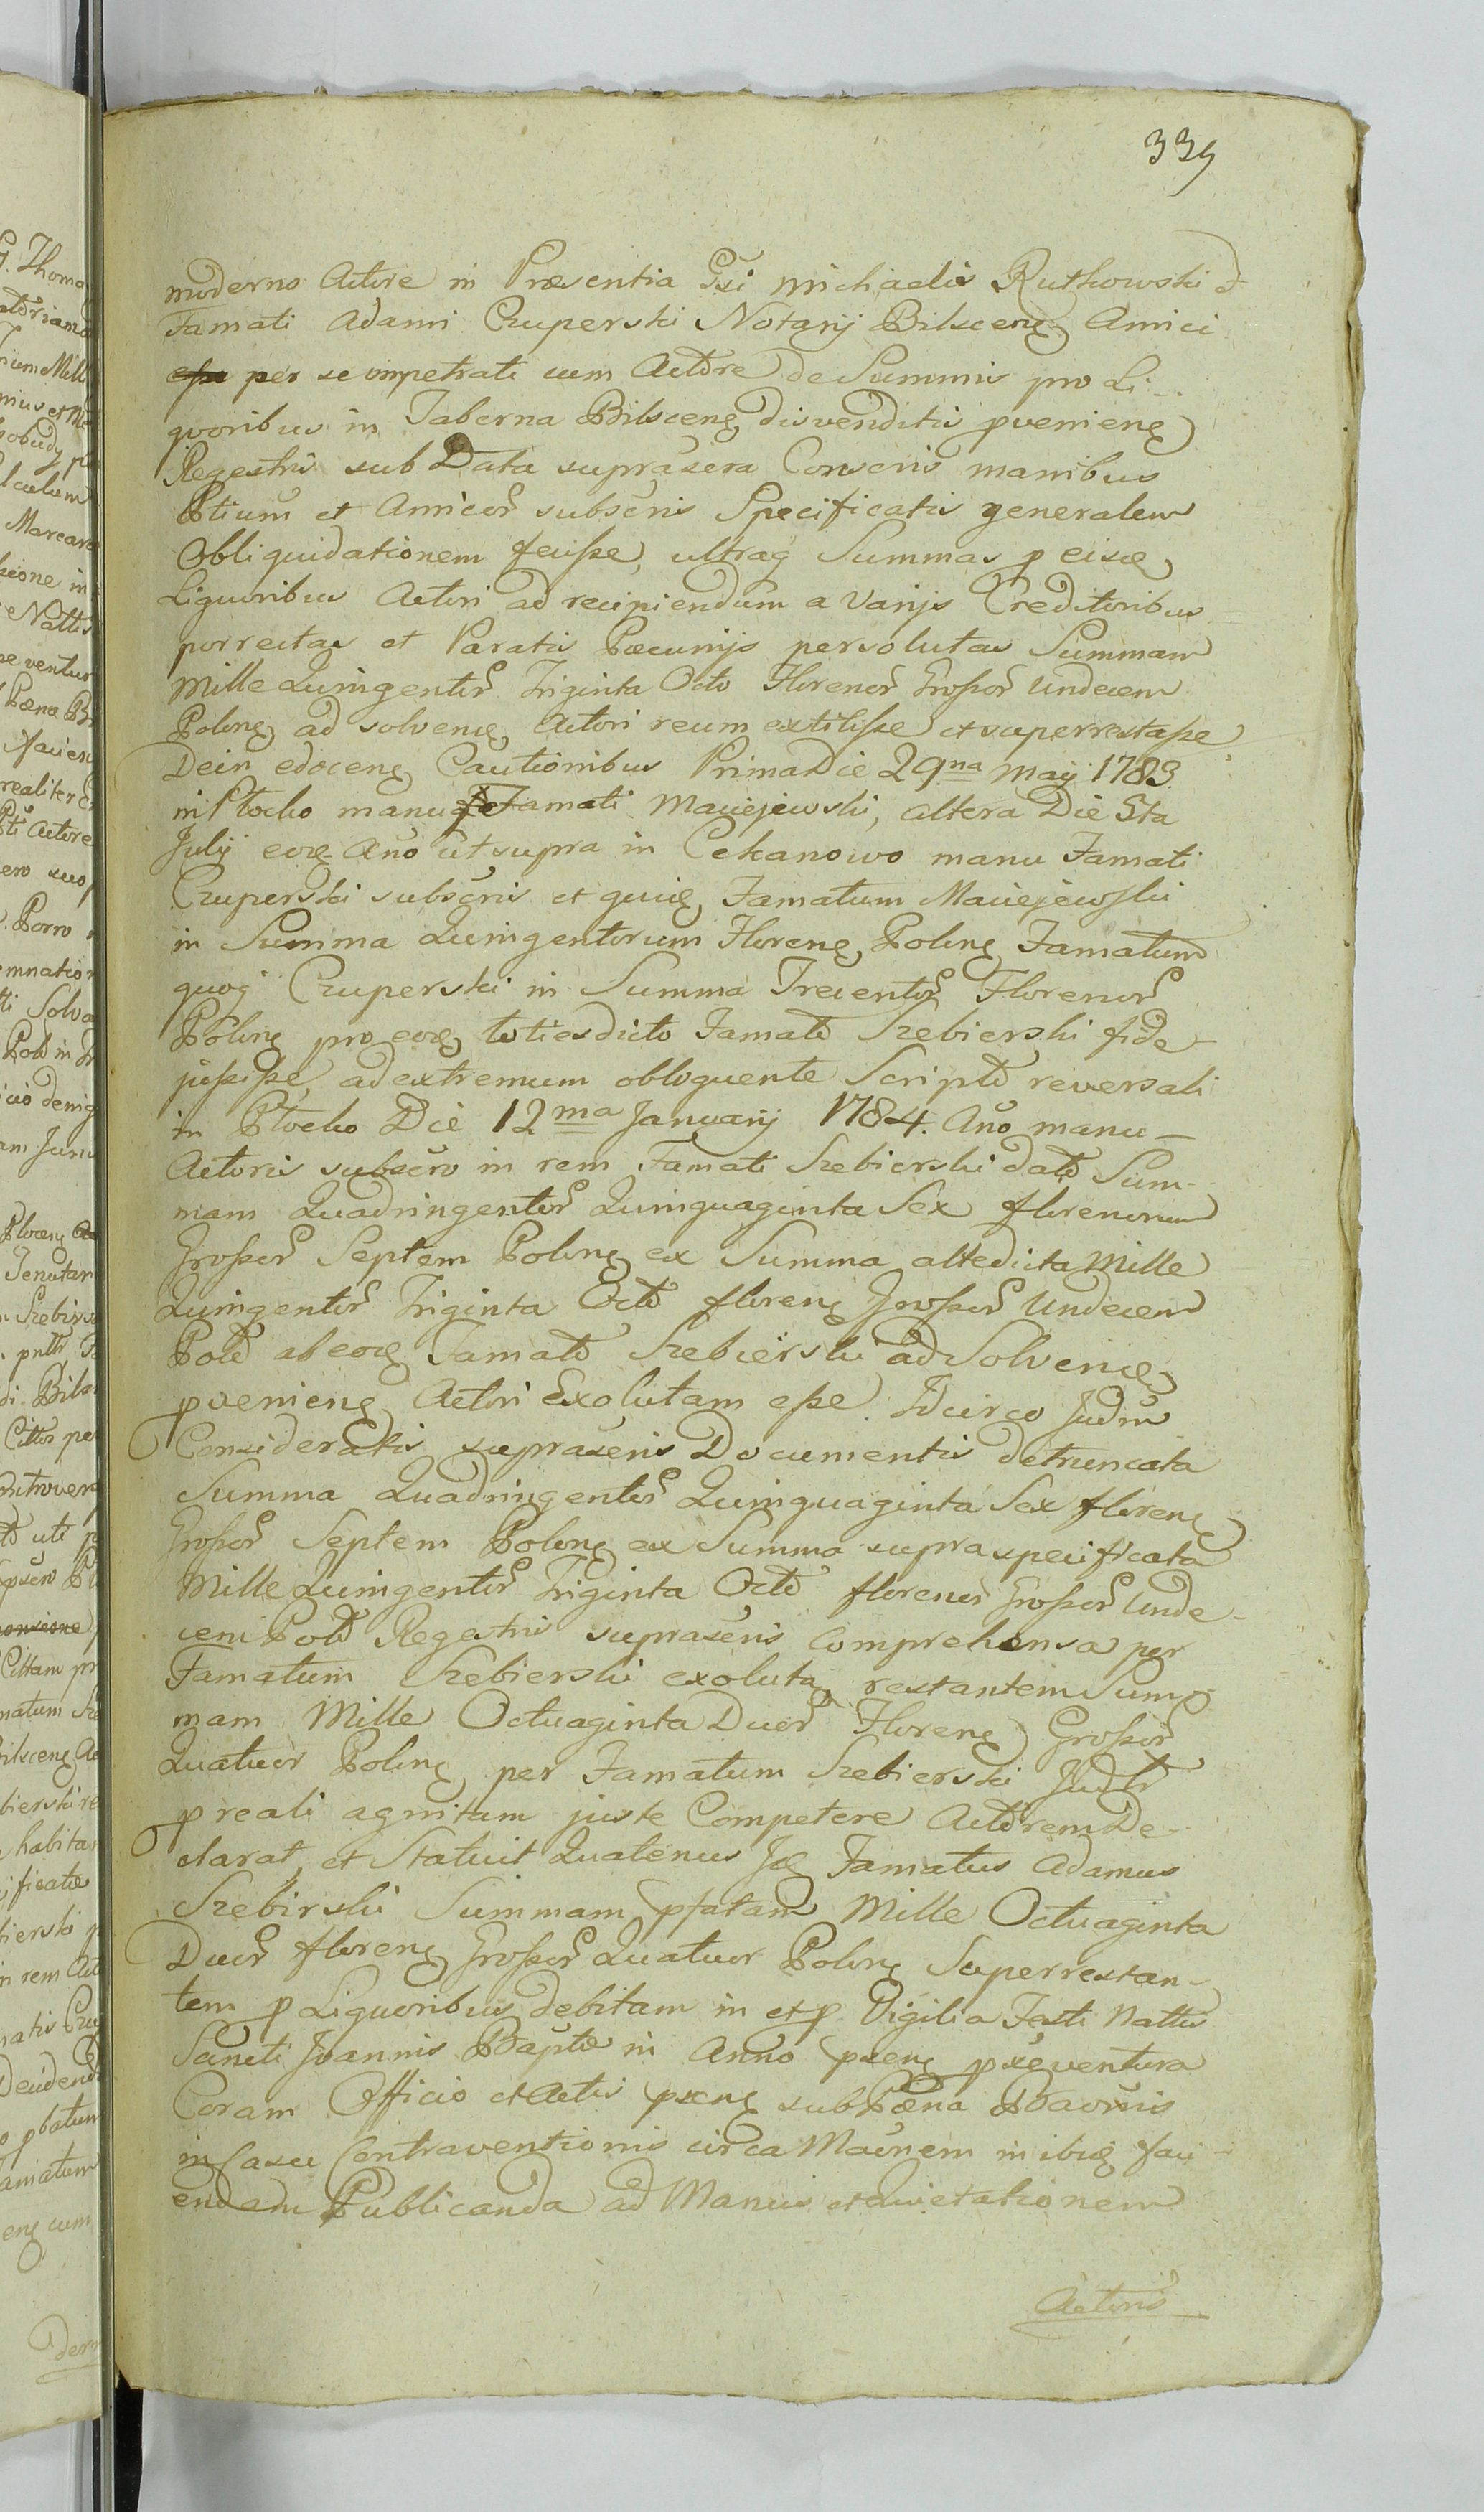 339
moderno Actore in Præsentia Gsi Michaelis Rutkowski et
Famati Adami Czuperski Notarij Bilsceng Amici
per se impetrati cum Actore de Summis pro Li-
quoribus in Taberna Bilsceng disvenditis pvenieng
Regestris sub Data suprascra Conscris manibus
Ptium et Amicor subscris Specificatis generalem
Obliquidationem fecisse, ultraq Summas p eisd
Liquoribus Actori ad recipiendum a Varijs Creditoribus
porrectas et Paratis Pecunijs persolutas Summam
Mille Quingentor Triginta Octo Florenor Grossor Undecem
Polong ad solvend Actori reum extitisse et superrestasse
Dein edoceng Cautionibus Prima Die 29na Maij 1783
in Plocko manu Famati Maciejewski, altera Die 5ta
Julij eod Ano ut supra in Cekanowo manu Famati
Czuperski subscris et quid Famatum Maciejewski
in Summa Quingentorum Floreng Polong Famatum
quoq Czuperski in Summa Trecentor Florenor
Polong pro eod totiesdicto Famato Szebierski fide-
jussisse, ad extremum obloquente Scripto reversali
in Plocko Die 12ma Januarij 1784. Ano manu
Actoris subscro in rem Famati Szebierski dato Sum-
mam Quadringentor Quinquaginta Sex florenorum
Grossor Septem Polong ex Summa altedicta Mille
Quingentor Triginta Octo floreng Grossor Undecem
Pold ab eod Famato Szebierski ad Solvend
pvenieng Actori Exolutam esse. Idcirco Judm
Consideratis suprascris Documentis detruncata
Summa Quadringentor Quinquaginta Sex floreng
Grossor Septem Polong ex Summa supra specificata
Mille Quingentor Triginta Octo florenor Grossor Unde-
cem Pold Regestris suprascris comprehensa per
Famatum Szebierski exoluta, restantem Sum-
mam Mille Octuaginta Duor Floreng Grossor
Quatuor Polong per Famatum Szebierski Judtr
p reali agnitam juste Competere Actorem De-
clarat, et Statuit Quatenus Idem Famatus Adamus
Szebirski Summam pfatam Mille Octuaginta
Duor floreng Grossor Quatuor Polong Superrestan-
tem p Liquoribus debitam in et p Vigilia Festi Nattis
Sancti Joannis Baptæ in Anno pseng pxeventura
Coram Officio et Actis pseng sub Pæna Baonis
in Casu Contraventionis circa Maonem in ibid faci-
endam Publicanda ad Manus et Quietationem
Actoris